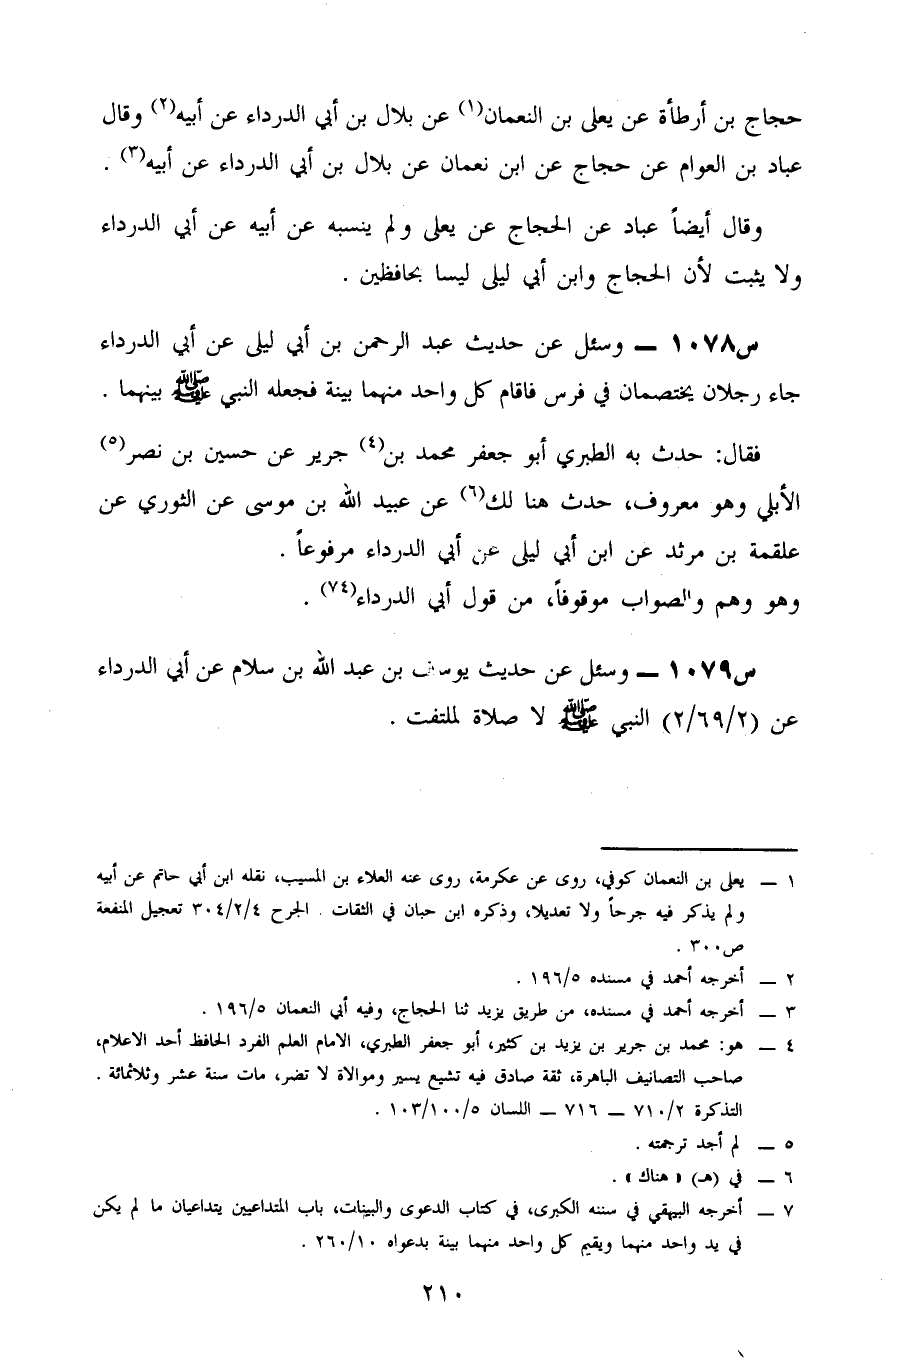 حجاج بن أرطأة عن يعلى بن النعمان(١) عن بلال بن أبي الدرداء عن أبيه(٢) وقال
عباد بن العوام عن حجاج عن ابن نعمان عن بلال بن أبي الدرداء عن أبيه(٣) .
وقال أيضاً عباد عن الحجاج عن يعلى ولم ينسبه عن أبيه عن أبي الدرداء
ولا يثبت لأن الحجاج وابن أبي ليلى ليسا بحافظين .
س١٠٧٨ ــ وسئل عن حديث عبد الرحمن بن أبي ليلى عن أبي الدرداء
جاء رجلان يختصمان في فرس فاقام كل واحد منهما بينة فجعله النبي ﷺ بينهما .
فقال: حدث به الطبري أبو جعفر محمد بن(٤) جرير عن حسين بن نصر(٥)
الأبلي وهو معروف، حدث هنا لك(٦) عن عبيد الله بن موسى عن الثوري عن
علقمة بن مرثد عن ابن أبي ليلى عن أبي الدرداء مرفوعاً .
وهو وهم والصواب موقوفاً، من قول أبي الدرداء(٧٤) .
س١٠٧٩ ــ وسئل عن حديث يوسف بن عبد الله بن سلام عن أبي الدرداء
عن (٢/٦٩/٢) النبي ﷺ لا صلاة لملتفت .
١ ــ يعلى بن النعمان كوفي، روى عن عكرمة، روى عنه العلاء بن المسيب، نقله ابن أبي حاتم عن أبيه
ولم يذكر فيه جرحاً ولا تعديلا، وذكره ابن حبان في الثقات . الجرح ٣٠٤/٢/٤ تعجيل المنفعة
ص٣٠٠ .
٢ ــ أخرجه أحمد في مسنده ١٩٦/٥ .
٣ ــ أخرجه أحمد في مسنده، من طريق يزيد ثنا الحجاج، وفيه أبي النعمان ١٩٦/٥ .
٤ ــ هو: محمد بن جرير بن يزيد بن كثير، أبو جعفر الطبري، الامام العلم الفرد الحافظ أحد الاعلام،
صاحب التصانيف الباهرة، ثقة صادق فيه تشيع يسير وموالاة لا تضر، مات سنة عشر وثلاثمائة .
التذكرة ٧١٠/٢ ــ ٧١٦ ــ اللسان ١٠٣/١٠٠/٥ .
٥ ــ لم أجد ترجمته .
٦ ــ في (هـ) «هناك» .
٧ ــ أخرجه البيهقي في سننه الكبرى، في كتاب الدعوى والبينات، باب المتداعيين يتداعيان ما لم يكن
في يد واحد منهما ويقيم كل واحد منهما بينة بدعواه ٢٦٠/١٠ .
٢١٠